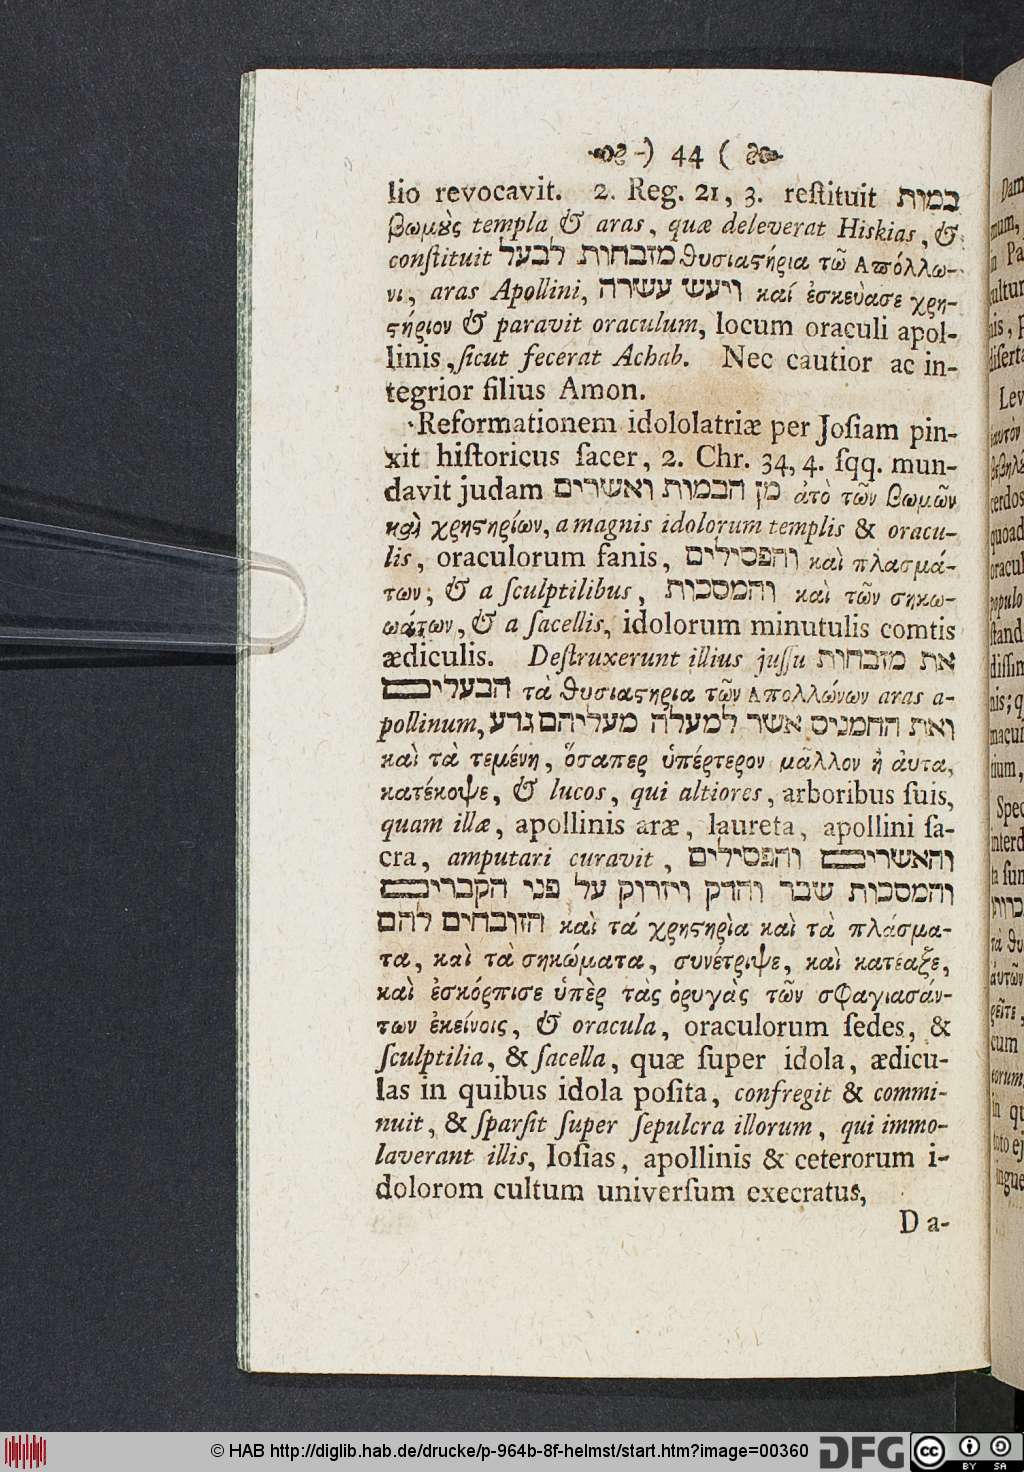 -) 44 (
lio revocavit. 2. Reg. 21, 3. reſtituit במות
βωμȣ̀ς templa & aras, quæ deleverat Hiskias, &
conſtituit מזבחות לבעל θυσιαϛήρια τῶ Απόλλω-
νι, aras Apollini, ויעש עשרה καί ἐσκεὺασε χρη-
ϛήριον & paravit oraculum, locum oraculi apol-
linis, ſicut fecerat Achab. Nec cautior ac in-
tegrior filius Amon.
Reformationem idololatriæ per Joſiam pin-
xit hiſtoricus ſacer, 2. Chr. 34, 4. ſqq. mun-
davit judam מן הבמות ואשרים ἀτὸ τῶν βωμῶν
καὶ χρηϛηρίων, a magnis idolorum templis & oracu-
lis, oraculorum fanis, והפסילים καὶ πλασμά-
των, & a ſculptilibus, והמסכות καὶ τῶν σηκω-
ωάτων, & a ſacellis, idolorum minutulis comtis
ædiculis. Deſtruxerunt illius juſſu את מזבחות
הבעלים τὰ θυσιαϛηρια τῶν Απολλώνων aras a-
pollinum, ואת החמניס אשר למעלה מעליהם גדע
καὶ τὰ τεμένη, ὅσαπερ ὑπέρτερον μᾶλλον ἢ ἀυτα,
κατέκοψε, & lucos, qui altiores, arboribus ſuis,
quam illæ, apollinis aræ, laureta, apollini ſa-
cra, amputari curavit, והאשרים והפסילים
והמסכות שבר והדק ויזרוק על פני הקברים
הזובחים להם καὶ τά χρηϛηρὶα καὶ τὰ πλάσμα-
τα, καὶ τὰ σηκώματα, συνέτριψε, καὶ κατέαξε,
καὶ ἐσκόρπισε ὑπὲρ τὰς ὀρυγὰς τῶν σφαγιασάν-
των ἐκείνοις, & oracula, oraculorum ſedes, &
ſculptilia, & ſacella, quæ ſuper idola, ædicu-
las in quibus idola poſita, confregit & commi-
nuit, & ſparſit ſuper ſepulcra illorum, qui immo-
laverant illis, Ioſias, apollinis & ceterorum i-
dolorom cultum univerſum execratus,
Da-
© HAB http://diglib.hab.de/drucke/p-964b-8f-helmst/start.htm?image=00360 DFG cc BY SA